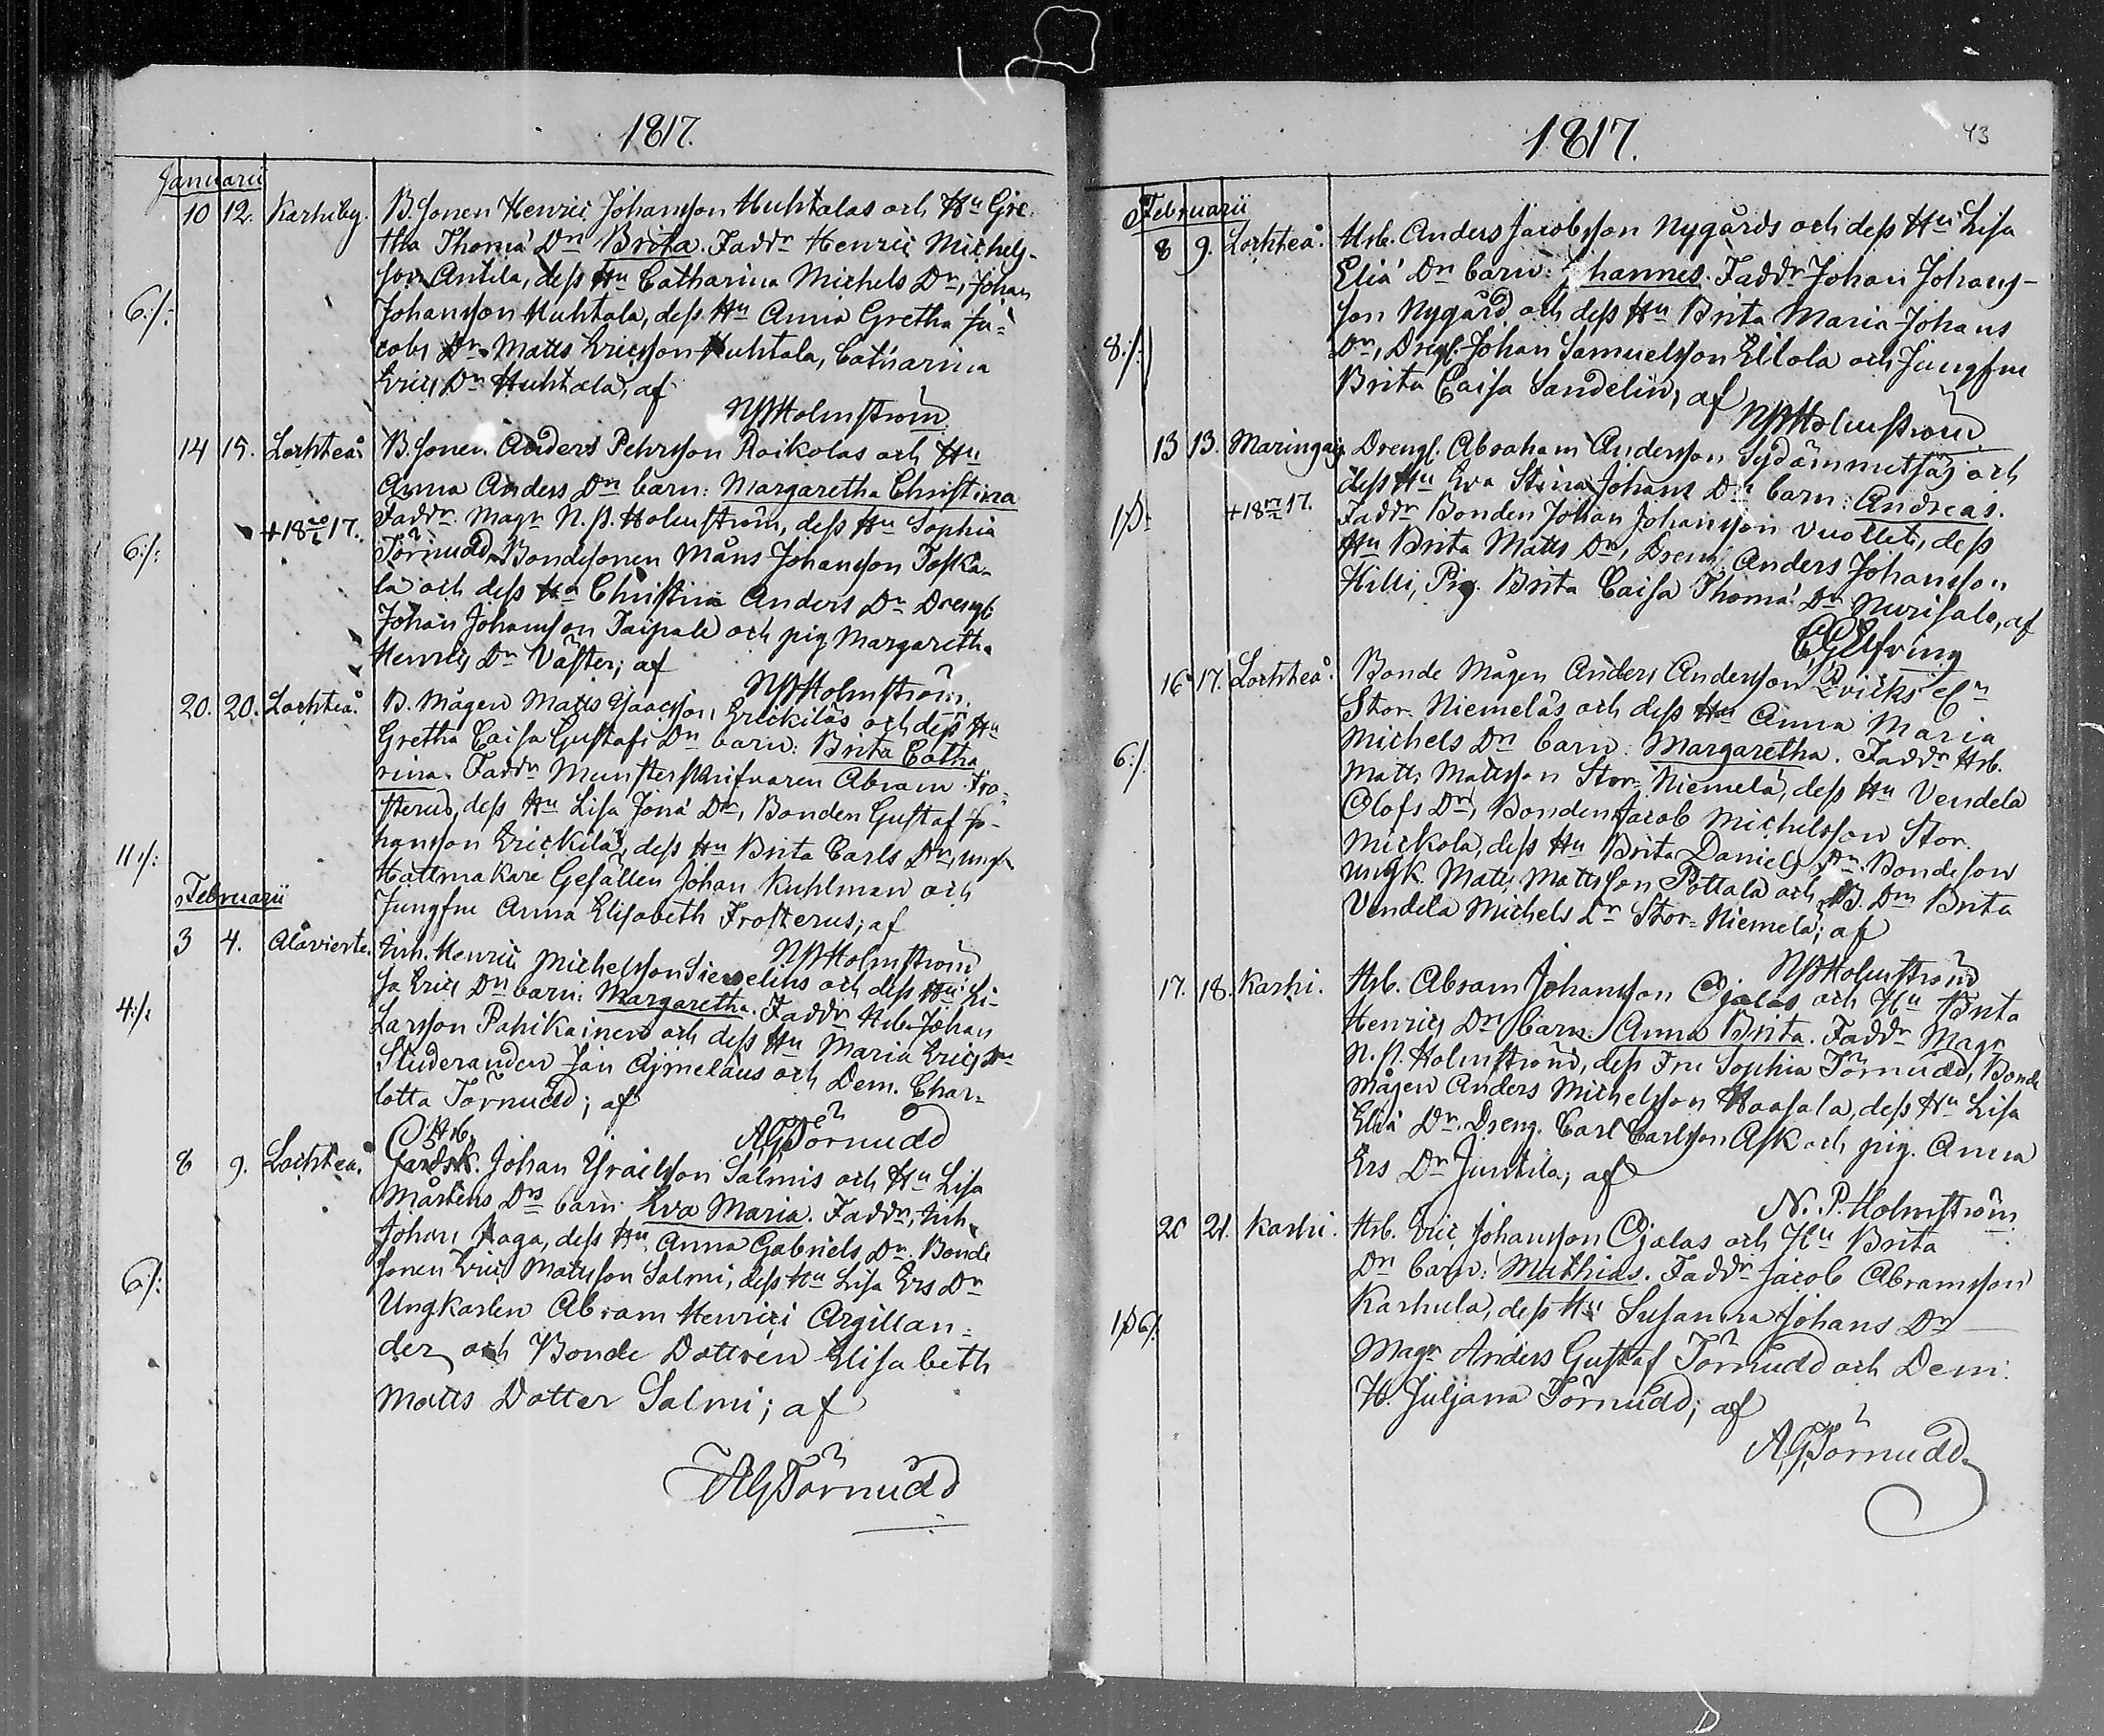 1817.
Januarii
10 12. Karhiby. B. Sonen Henric Johansson Huhtalas och Hu Gre-
tha Thomæ Dr Brita. Faddr Henric Michels-
son Antila, dess Hu Catharina Michels Dr, Johan
6/: Johansson Huhtala, dess Hu Anna Gretha Ja-
cobs Dr Matts Ericsson Huhtala, Catharina
Erics Dr Huhtala, af
NPHolmström
14 15. Lochteå B. Sonen Anders Pehrsson Raikolas och Hu
Anna Anders Dr barn: Margaretha Christina
+18 20/2 17. Faddr. Magr N. P. Holmström, dess Hu Sophia
6/: Törnudd, Bondesonen Måns Johansson Toska-
la och dess Hu Christina Anders Dr Drengl.
Johan Johansson Taipale och pig Margaretha
Henrics Dr Väster; af
NPHolmström.
20. 20. Lochteå B. Mågen Matts Ysaacsson Erickiläs och dess Hu
Gretha Caisa Gustafs Dr barn: Brita Catha
rina. Faddr Munsterskrifvaren Abram Fro-
sterus, dess Hu Lisa Jonæ Dr, Bonden Gustaf Jo-
hansson Erickilä, dess Hu Brita Carls Dr, ungk
11/: Hattmakare Gesällen Johan Kuhlman och
Jungfru Anna Elisabeth Frosterus; af
NPHolmström
Februarii
3 4. Alavierte. Inh. Henric Michelsson Sievelius och dess Hu Li-
sa Erics Dr barn: Margaretha. Faddr Hrb. Johan
4/: Larsson Pahikainen och dess Hu Maria Erics Dr
Studeranden Jan Ajmelæus och Dem. Char-
lotta Törnudd; af
AGTörnudd
Hrb.
8 9. Lochteå. Gardsk. Johan Ysraelsson Salmis och Hu Lisa
Mårtens Drs barn Eva Maria. Faddr, Inh.
Johan Haga, dess Hu Anna Gabriels Dr. Bonde
6/: Sonen Eric Mattsson Salmi, dess Hu Lisa Ers Dr
Ungkarlen Abram Henrici Argillan-
der och Bonde Dottren Elisabeth
Matts Dotter Salmi; af
AGTörnudd
1817.
43
Februarii
8 9. Lochteå. Hrb. Anders Jacobsson Nygårds och dess Hu Lisa
Eliæ Dr barn: Johannes. Faddr Johan Johans-
son Nygård och dess Hu Brita Maria Johans
8/: Dr, Drengl. Johan Samuelsson Ellola och Jungfru
Brita Caisa Sandelin, af
NPHolmström
13 13. Maringais Drengl. Abraham Andersson Sydänmetsäs och
dess Hu Eva Stina Johans Dr barn: Andreas.
+18 17. Faddr Bonden Johan Johansson Vuollet, dess
Hu Brita Matts Dr, Dreng Anders Johansson
Hilli, Pig. Brita Caisa Thomæ Dr Nurisalo, af
Elfving
16 17. Lochteå. Bonde Mågen Anders Andersson
Stor-Niemeläs och dess Hu Anna Maria
Michels Dr barn: Margaretha. Faddr Hrb.
6/. Matts Mattsson Stor-Niemelä, dess Hu Vendela
Olofs Dr, Bonden Jacob Michelsson Stor-
Mickola, dess Hu Brita Daniels Dr. Bondeson
ungk. Matts Mattsson Pottala och B. Dr Brita
Vendela Michels Dr Stor-Niemelä; af
NPHolmström
17. 18. Karhi. Hrb. Abram Johansson Ojalas och Hu Brita
Henrics Dr barn: Anna Brita. Faddr Magr
N. P. Holmström, dess Fru Sophia Törnudd, Bonde
mågen Anders Michelsson Haasala, dess Hu Lisa
Eliæ Dr. Dreng. Carl Carlsson Ask och pig. Anna
Ers Dr Juntila; af
N. P. Holmström
20 21. Karhi. Hrb. Eric Johansson Ojalas och Hu Brita
Dr barn: Mathias. Faddr Jacob Abramsson
Karhula, dess Hu Susanna Johans Dr
Magr Anders Gustaf Törnudd och Dem.
H. Juljana Törnudd; af
AGTörnudd.